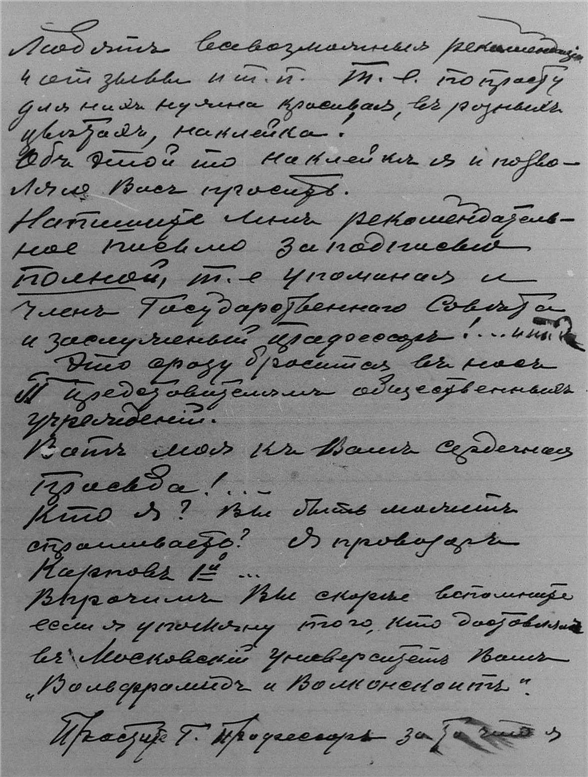 Любятъ всевозможныя рекомендаціи
и отзывы и т. п. Т. е. попросту
для нихъ нужна красивая, въ розныхъ
цвѣтахъ, наклейка!
Объ этой то наклейкѣ я и позво-
ляю Васъ просить.
Напишите мнѣ рекомендатель-
ное письмо за подписью
полной, т. е упоминая и
членъ Государственнаго Совѣта
и заслуженый профессоръ!...
Это сразу бросится въ носъ
представителямъ общественныхъ
учрежденій.
Вотъ моя къ Вамъ сердечная
просьба!...
Кто я? Вы быть можетъ
спрашиваете? Я проводоръ
Карповъ 1й ...
Впрочемъ Вы скорѣе вспомните
если я упомяну того, кто доставлялъ
въ Московскій Университетъ Вамъ
„Вольфрамидъ и Волконскоитъ".
Простите Г. Профессоръ за то что я